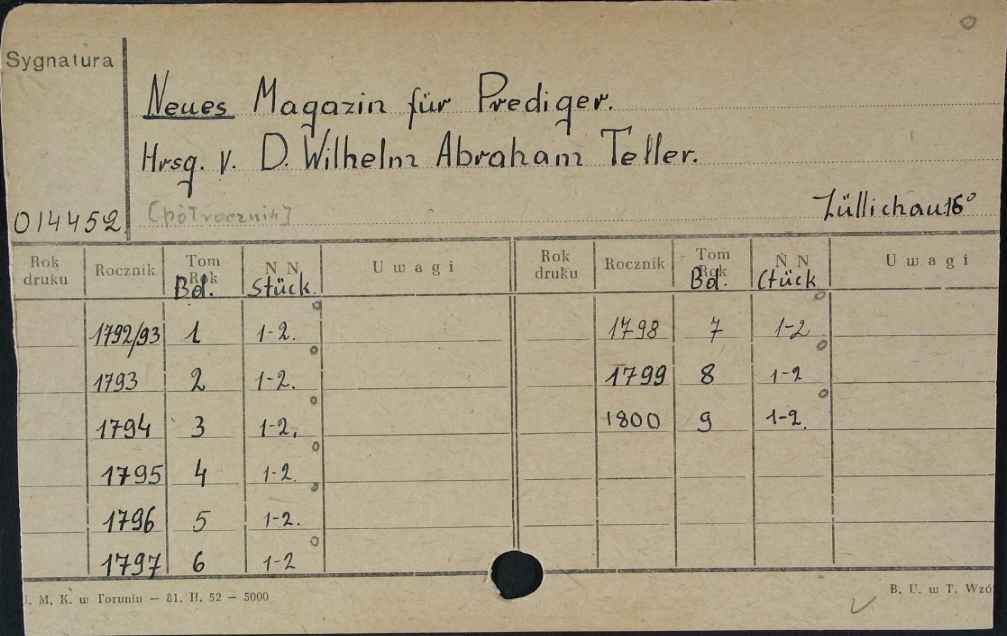 Sygnatura
Neues Magazin für Prediger.
Hrsg. v. D. Wilhelm Abraham Teller.
014452 [półrocznik] Züllichau 16°
Rok druku Rocznik Tom Rok Bd. N N Stück. Uwagi Rok druku Rocznik Tom Rok Bd. N N Stück Uwagi
1792/93 1 1-2. 1798 7 1-2
1793 2 1-2. 1799 8 1-2
1794 3 1-2. 1800 9 1-2.
1795 4 1-2.
1796 5 1-2.
1797 6 1-2
J. M. K. w Toruniu — 81. H. 52 — 5000 B. U. w T. Wzó